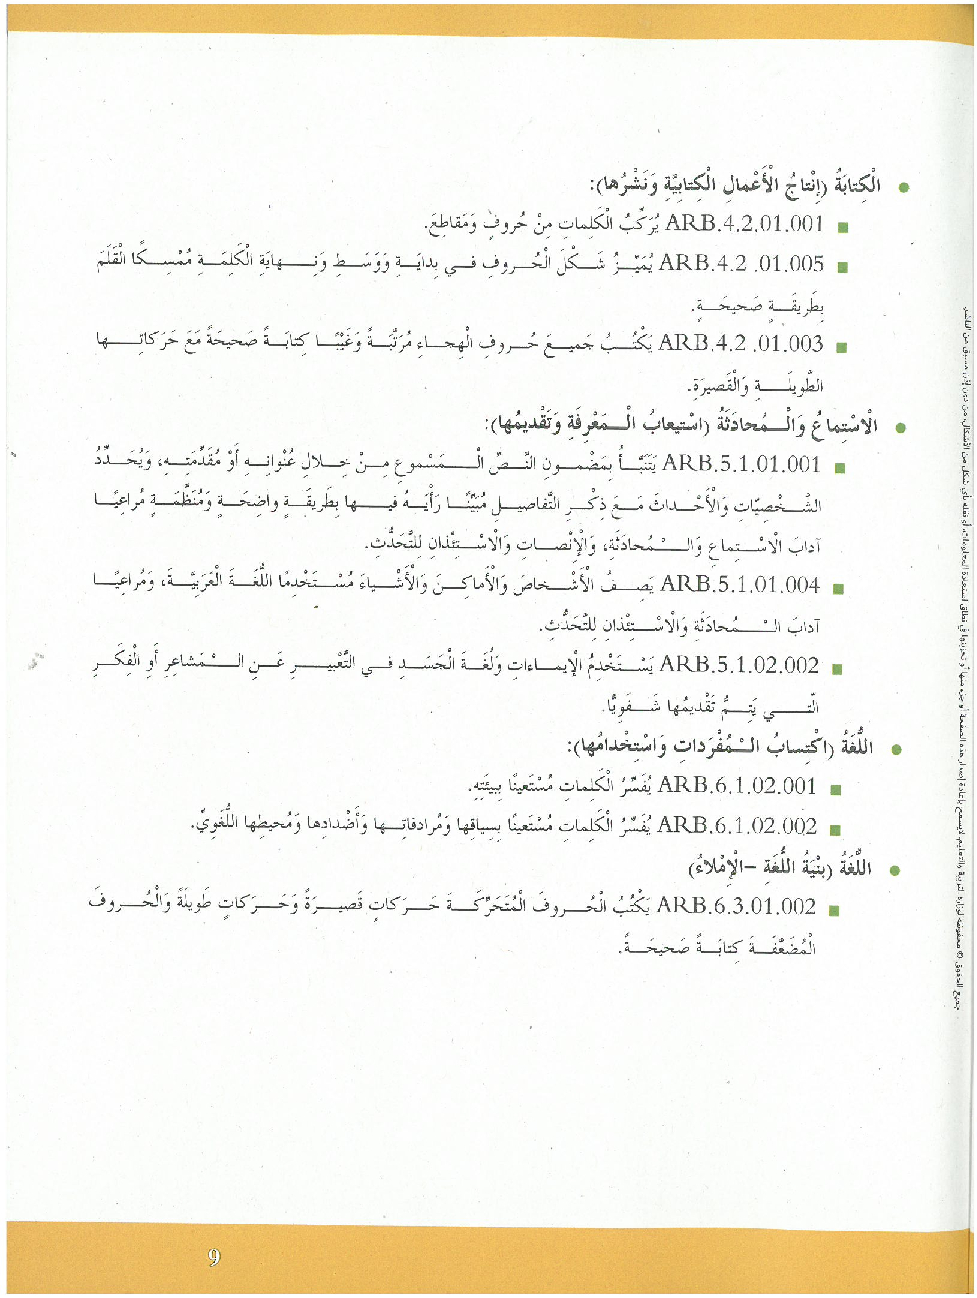 • الْكِتابَةُ (إِنْتاجُ الْأَعْمالِ الْكِتابِيَّةِ وَنَشْرُها):
■ ARB.4.2.01.001 يُرَكِّبُ الْكَلِماتِ مِنْ حُروفٍ وَمَقاطِعَ.
■ ARB.4.2 .01.005 يُمَيِّزُ شَكْلَ الْحُروفِ في بِدايَةِ وَوَسَطِ وَنِهايَةِ الْكَلِمَةِ مُمْسِكًا الْقَلَمَ
بِطَريقَةٍ صَحيحَةٍ.
■ ARB.4.2 .01.003 يَكْتُبُ جَميعَ حُروفِ الْهِجاءِ مُرَتَّبَةً وَغَيْبًا كِتابَةً صَحيحَةً مَعَ حَرَكاتِها
الطَّويلَةِ وَالْقَصيرَةِ.
• الْاسْتِماعُ وَالْمُحادَثَةُ (اسْتيعابُ الْمَعْرِفَةِ وَتَقْديمُها):
■ ARB.5.1.01.001 يَتَنَبَّأُ بِمَضْمونِ النَّصِّ الْمَسْموعِ مِنْ خِلالِ عُنْوانِهِ أَوْ مُقَدِّمَتِهِ، وَيُحَدِّدُ
الشَّخْصِيّاتِ وَالْأَحْداثَ مَعَ ذِكْرِ التَّفاصيلِ مُبَيِّنًا رَأْيَهُ فيها بِطَريقَةٍ واضِحَةٍ وَمُنَظَّمَةٍ مُراعِيًا
آدابَ الْاسْتِماعِ وَالْمُحادَثَةِ، وَالْإِنْصاتِ وَالْاسْتِئْذانِ لِلتَّحَدُّثِ.
■ ARB.5.1.01.004 يَصِفُ الْأَشْخاصَ وَالْأَماكِنَ وَالْأَشْياءَ مُسْتَخْدِمًا اللُّغَةَ الْعَرَبِيَّةَ، وَمُراعِيًا
آدابَ الْمُحادَثَةِ وَالْاسْتِئْذانِ لِلتَّحَدُّثِ.
■ ARB.5.1.02.002 يَسْتَخْدِمُ الْإيماءاتِ وَلُغَةَ الْجَسَدِ في التَّعْبيرِ عَنِ الْمَشاعِرِ أَوِ الْفِكَرِ
الَّتي يَتِمُّ تَقْديمُها شَفَوِيًّا.
• اللُّغَةُ (اكْتِسابُ الْمُفْرَداتِ وَاسْتِخْدامُها):
■ ARB.6.1.02.001 يُفَسِّرُ الْكَلِماتِ مُسْتَعينًا بِبيئَتِهِ.
■ ARB.6.1.02.002 يُفَسِّرُ الْكَلِماتِ مُسْتَعينًا بِسِياقِها وَمُرادِفاتِها وَأَضْدادِها وَمُحيطِها اللُّغَوِيِّ.
• اللُّغَةُ (بِنْيَةُ اللُّغَةِ -الْإِمْلاءُ)
■ ARB.6.3.01.002 يَكْتُبُ الْحُروفَ الْمُتَحَرِّكَةَ حَرَكاتٍ قَصيرَةً وَحَرَكاتٍ طَويلَةً وَالْحُروفَ
الْمُضَعَّفَةَ كِتابَةً صَحيحَةً.
جميع الحقوق © محفوظة لوزارة التربية والتعليم. لا يسمح بإعادة إصدار هذه الصفحة أو جزء منها أو تخزينها في نطاق استعادة المعلومات، أو نقله بأي شكل من الأشكال، من دون إذن مسبق من الناشر
9